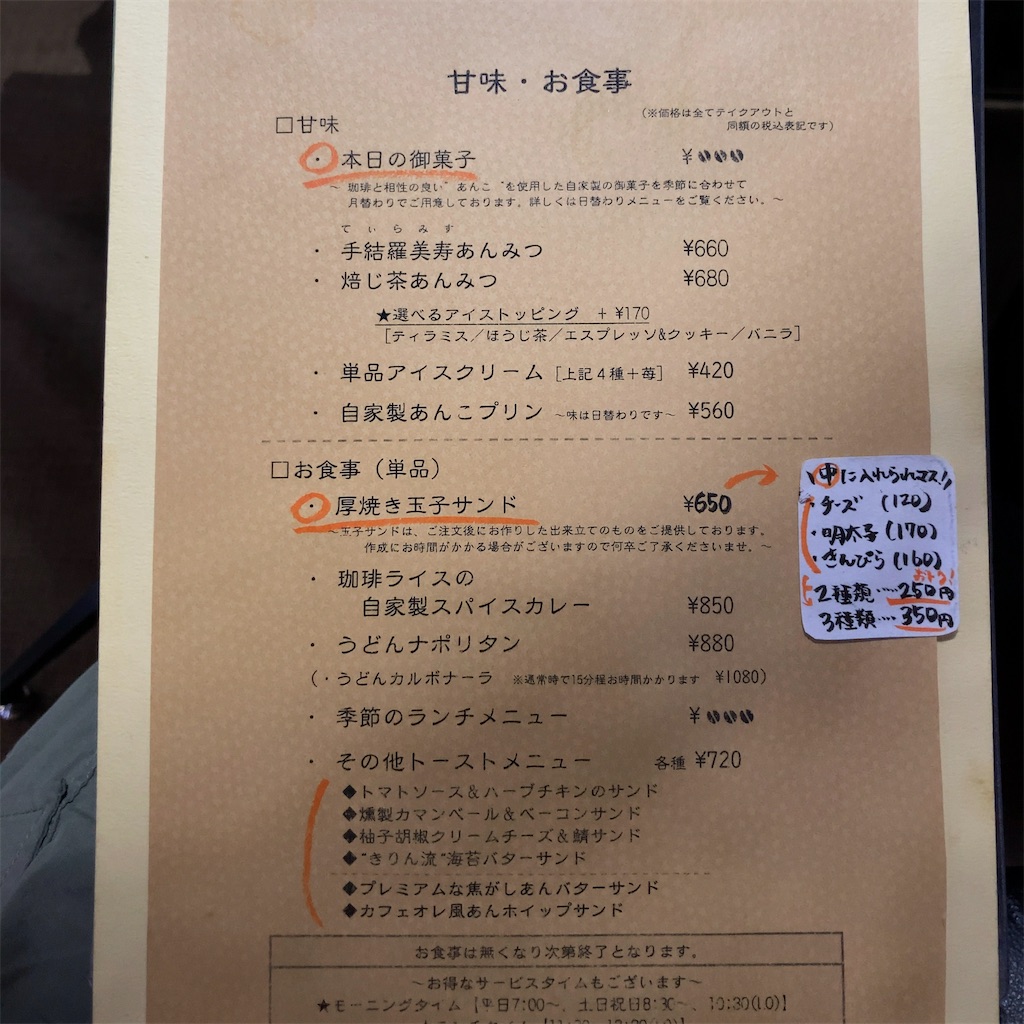 甘味・お食事
(※価格は全てテイクアウトと
同額の税込表記です)
□甘味
・本日の御菓子 ¥
～ 珈琲と相性の良い"あんこ"を使用した自家製の御菓子を季節に合わせて
月替わりでご用意しております。詳しくは日替わりメニューをご覧ください。～
てぃらみす
・手結羅美寿あんみつ ¥660
・焙じ茶あんみつ ¥680
★選べるアイストッピング +¥170
[ティラミス／ほうじ茶／エスプレッソ&クッキー／バニラ]
・単品アイスクリーム [上記4種＋苺] ¥420
・自家製あんこプリン ～味は日替わりです～ ¥560
□お食事（単品）
・厚焼き玉子サンド ¥650
～玉子サンドは、ご注文後にお作りした出来立てのものをご提供しております。
作成にお時間がかかる場合がございますので何卒ご了承くださいませ。～
・珈琲ライスの
自家製スパイスカレー ¥850
・うどんナポリタン ¥880
(・うどんカルボナーラ ※通常時で15分程お時間かかります ¥1080)
・季節のランチメニュー ¥
・その他トーストメニュー 各種 ¥720
◆トマトソース＆ハーブチキンのサンド
◆燻製カマンベール＆ベーコンサンド
◆柚子胡椒クリームチーズ＆鯖サンド
◆"きりん流"海苔バターサンド
◆プレミアムな焦がしあんバターサンド
◆カフェオレ風あんホイップサンド
お食事は無くなり次第終了となります。
～お得なサービスタイムもございます～
★モーニングタイム【平日7:00～、土日祝日8:30～、10:30(LO)】
中に入れられマス!!
・チーズ (120)
・明太子 (170)
・きんぴら (160)
おトク!
2種類‥‥250円
3種類‥‥350円